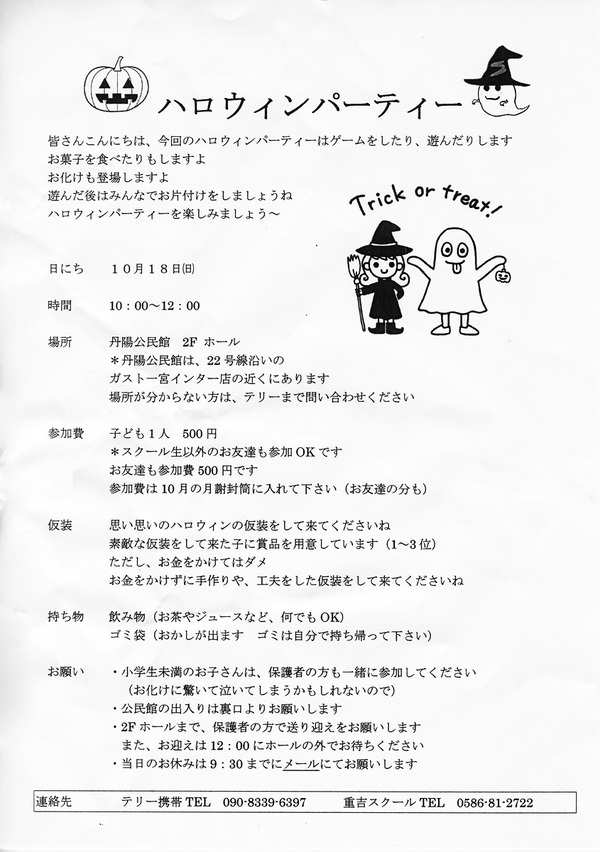 ハロウィンパーティー
皆さんこんにちは、今回のハロウィンパーティーはゲームをしたり、遊んだりします
お菓子を食べたりもしますよ
お化けも登場しますよ
遊んだ後はみんなでお片付けをしましょうね
ハロウィンパーティーを楽しみましょう～
Trick or treat!
日にち　１０月１８日㈰
時間　10：00～12：00
場所　丹陽公民館　2F ホール
＊丹陽公民館は、22 号線沿いの
ガスト一宮インター店の近くにあります
場所が分からない方は、テリーまで問い合わせください
参加費　子ども１人　500 円
＊スクール生以外のお友達も参加 OK です
お友達も参加費 500 円です
参加費は 10 月の月謝封筒に入れて下さい（お友達の分も）
仮装　思い思いのハロウィンの仮装をして来てくださいね
素敵な仮装をして来た子に賞品を用意しています（1～3 位）
ただし、お金をかけてはダメ
お金をかけずに手作りや、工夫をした仮装をして来てくださいね
持ち物　飲み物（お茶やジュースなど、何でも OK）
ゴミ袋（おかしが出ます　ゴミは自分で持ち帰って下さい）
お願い　・小学生未満のお子さんは、保護者の方も一緒に参加してください
（お化けに驚いて泣いてしまうかもしれないので）
・公民館の出入りは裏口よりお願いします
・2F ホールまで、保護者の方で送り迎えをお願いします
また、お迎えは 12：00 にホールの外でお待ちください
・当日のお休みは 9：30 までにメールにてお願いします
連絡先　テリー携帯 TEL　090-8339-6397　重吉スクール TEL　0586-81-2722